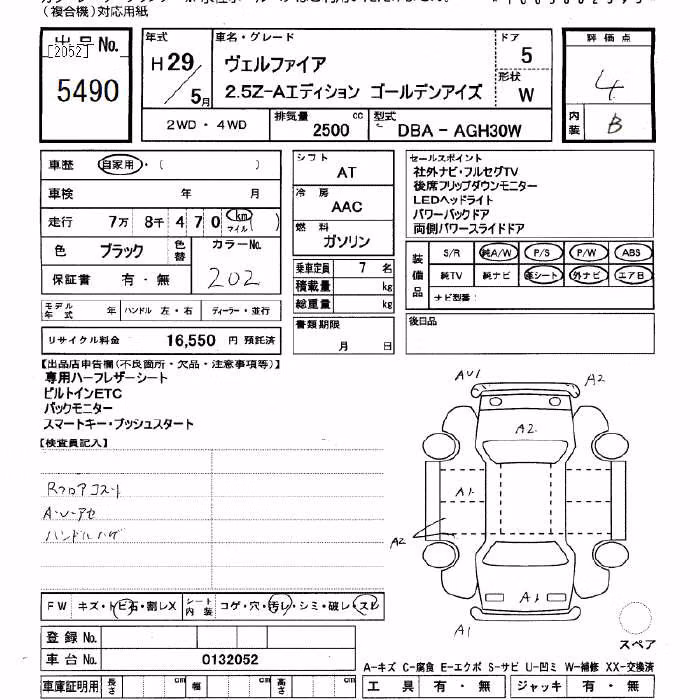 (複合機)対応用紙
出品No.
[2052]
5490
年式
H29/5月
車名・グレード
ヴェルファイア
2.5Z-Aエディション ゴールデンアイズ
ドア
5
形状
W
評価点
4
内装
B
2WD・4WD
排気量
2500 cc
型式
DBA - AGH30W
車歴 自家用・( )
車検 年 月
走行 7万 8千 4 7 0 km マイル ( )
色 ブラック
色替
カラーNo.
202
保証書 有・無
モデル年式 年
ハンドル 左・右
ディーラー・並行
リサイクル料金 16,550 円 預託済
シフト
AT
冷房
AAC
燃料
ガソリン
乗車定員 7 名
積載量 kg
総重量 kg
書類期限
月 日
セールスポイント
社外ナビ・フルセグTV
後席フリップダウンモニター
LEDヘッドライト
パワーバックドア
両側パワースライドドア
装備品
S/R 純A/W P/S P/W ABS
純TV 純ナビ 革シート 外ナビ エアB
ナビ型番:
後日品
【出品店申告欄(不良箇所・欠品・注意事項等)】
専用ハーフレザーシート
ビルトインETC
バックモニター
スマートキー・プッシュスタート
【検査員記入】
Rフロアコスリ
A・U・アセ
ハンドルハゲ
AU1
A2
A2
A1
A2
A1
A1
スペア
FW キズ・トビ石・割レX
シート内装 コゲ・穴・汚レ・シミ・破レ・スレ
登録No.
車台No. 0132052
車庫証明用 長さ cm 幅 cm 高さ cm
A-キズ C-腐食 E-エクボ S-サビ U-凹ミ W-補修 XX-交換済
工具 有・無 ジャッキ 有・無